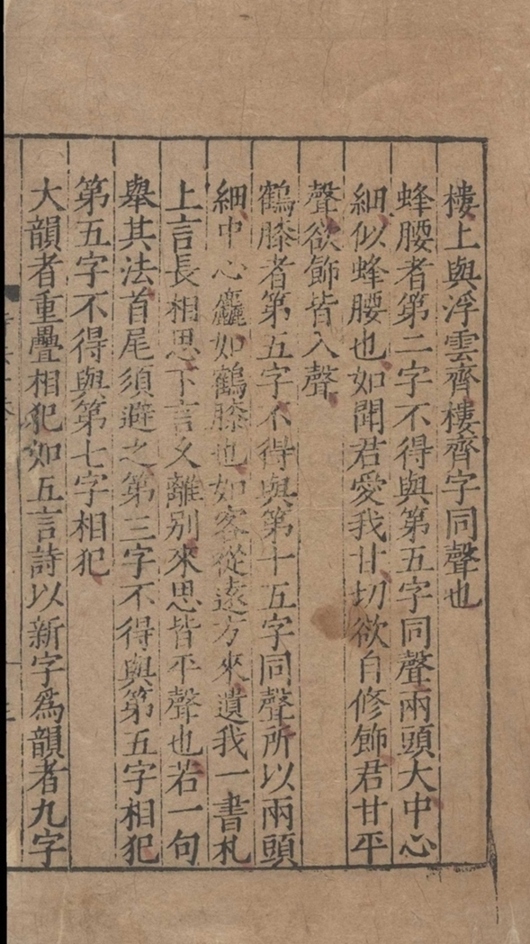 樓上與浮雲齊樓齊字同聲也
蜂腰者第二字不得與第五字同聲兩頭大中心
細似蜂腰也如聞君愛我甘切欲自修飾君甘平
聲欲飾皆入聲
鶴膝者第五字不得與第十五字同聲所以兩頭
細中心麤如鶴膝也如客從遠方來遺我一書札
上言長相思下言久離别來思皆平聲也若一句
舉其法首尾須避之第三字不得與第五字相犯
第五字不得與第七字相犯
大韻者重疊相犯如五言詩以新字爲韻者九字